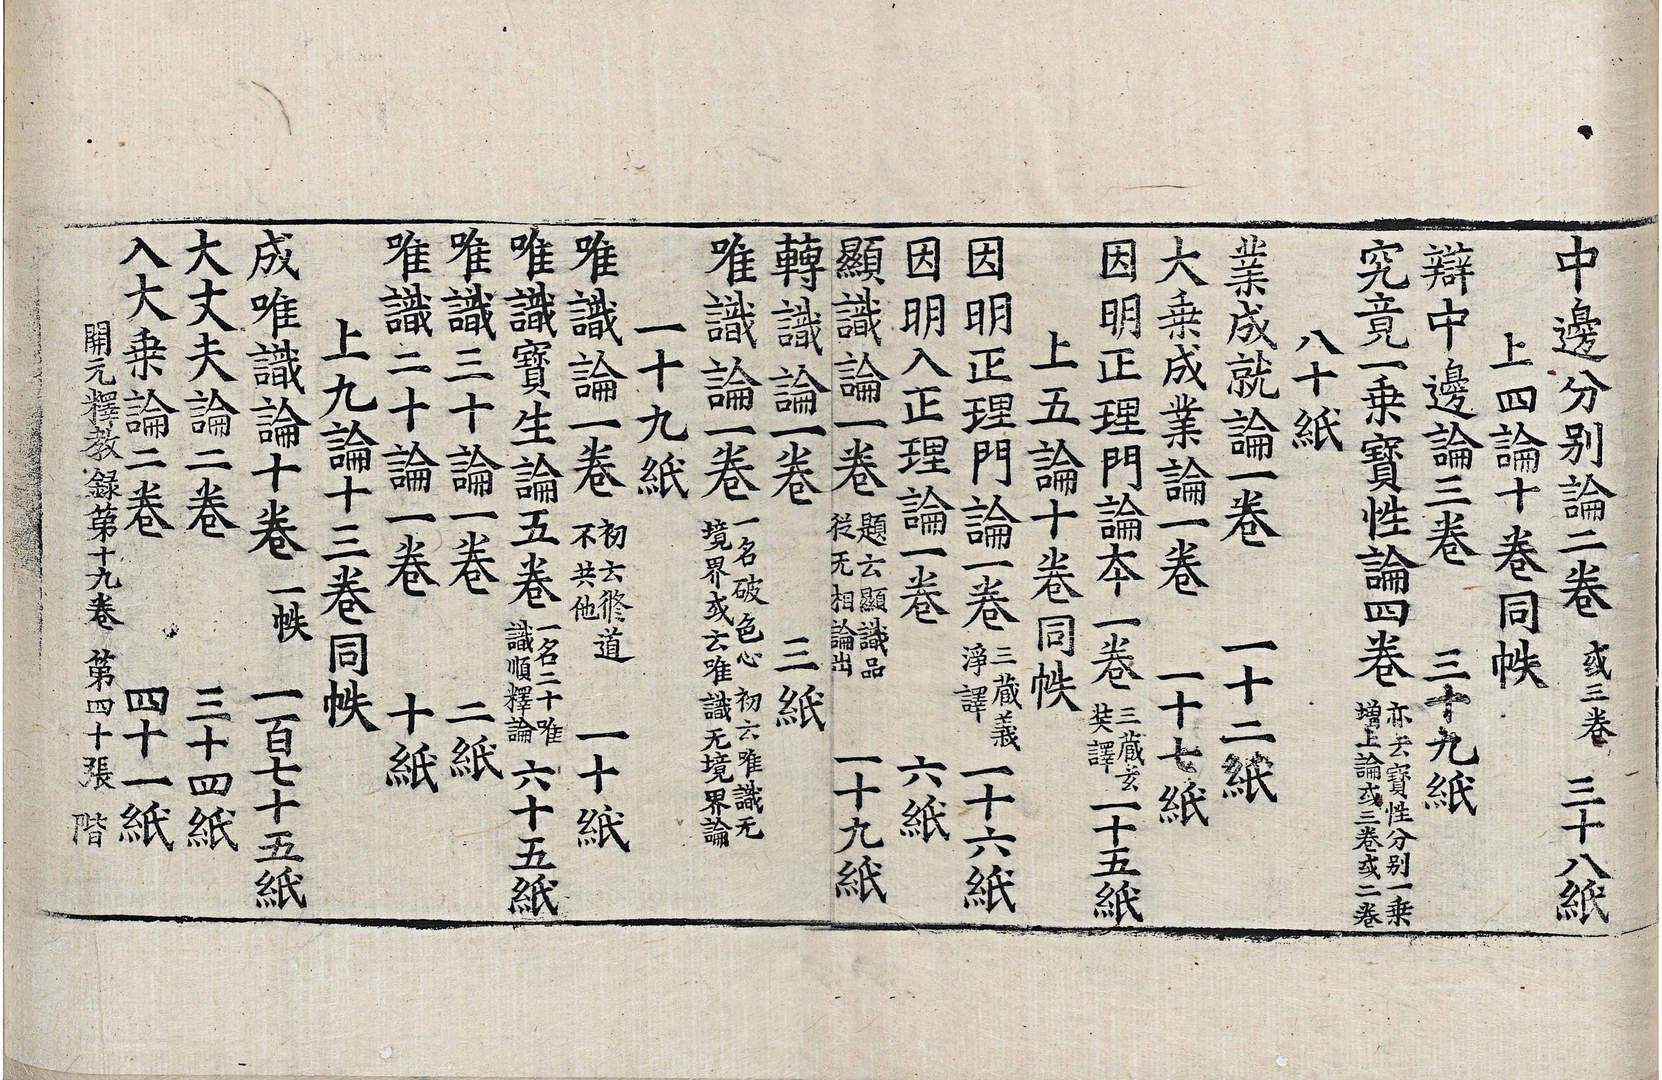 中邊分别論二卷 或三卷 三十八紙
上四論十卷同帙
辯中邊論三卷 三十九紙
究竟一乗寳性論四卷 亦云寳性分别一乗增上論或三卷或二卷
八十紙
業成就論一卷 一十二紙
大乗成業論一卷 一十七紙
因明正理門論本一卷 三蔵玄奘譯 一十五紙
上五論十卷同帙
因明正理門論一卷 三蔵義淨譯 一十六紙
因明入正理論一卷 六紙
顯識論一卷 題云顯識品從无相論出 一十九紙
轉識論一卷 三紙
唯識論一卷 一名破色心 初云唯識无境界或云唯識无境界論
一十九紙
唯識論一卷 初云修道不共他 一十紙
唯識寳生論五卷 一名二十唯識順釋論 六十五紙
唯識三十論一卷 二紙
唯識二十論一卷 十紙
上九論十三卷同帙
成唯識論十卷 一帙 一百七十五紙
大丈夫論二卷 三十四紙
入大乗論二卷 四十一紙
開元釋教錄第十九卷 第四十張 階